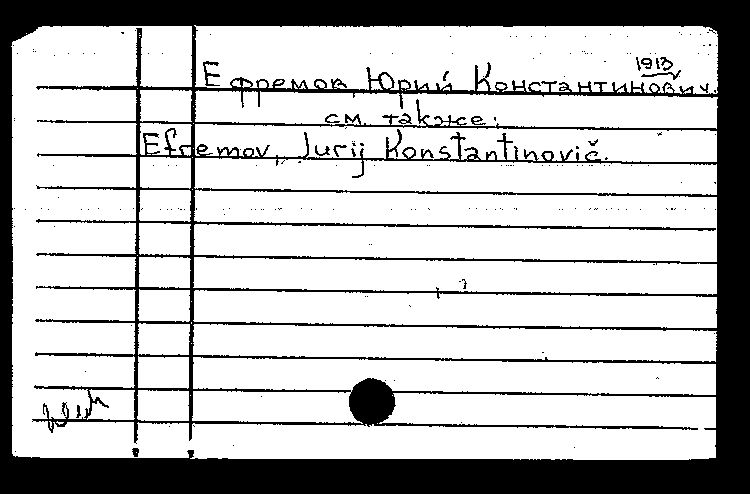 1913
Ефремов, Юрий Константинович.
см. также:
Efremov, Jurij Konstantinovič.